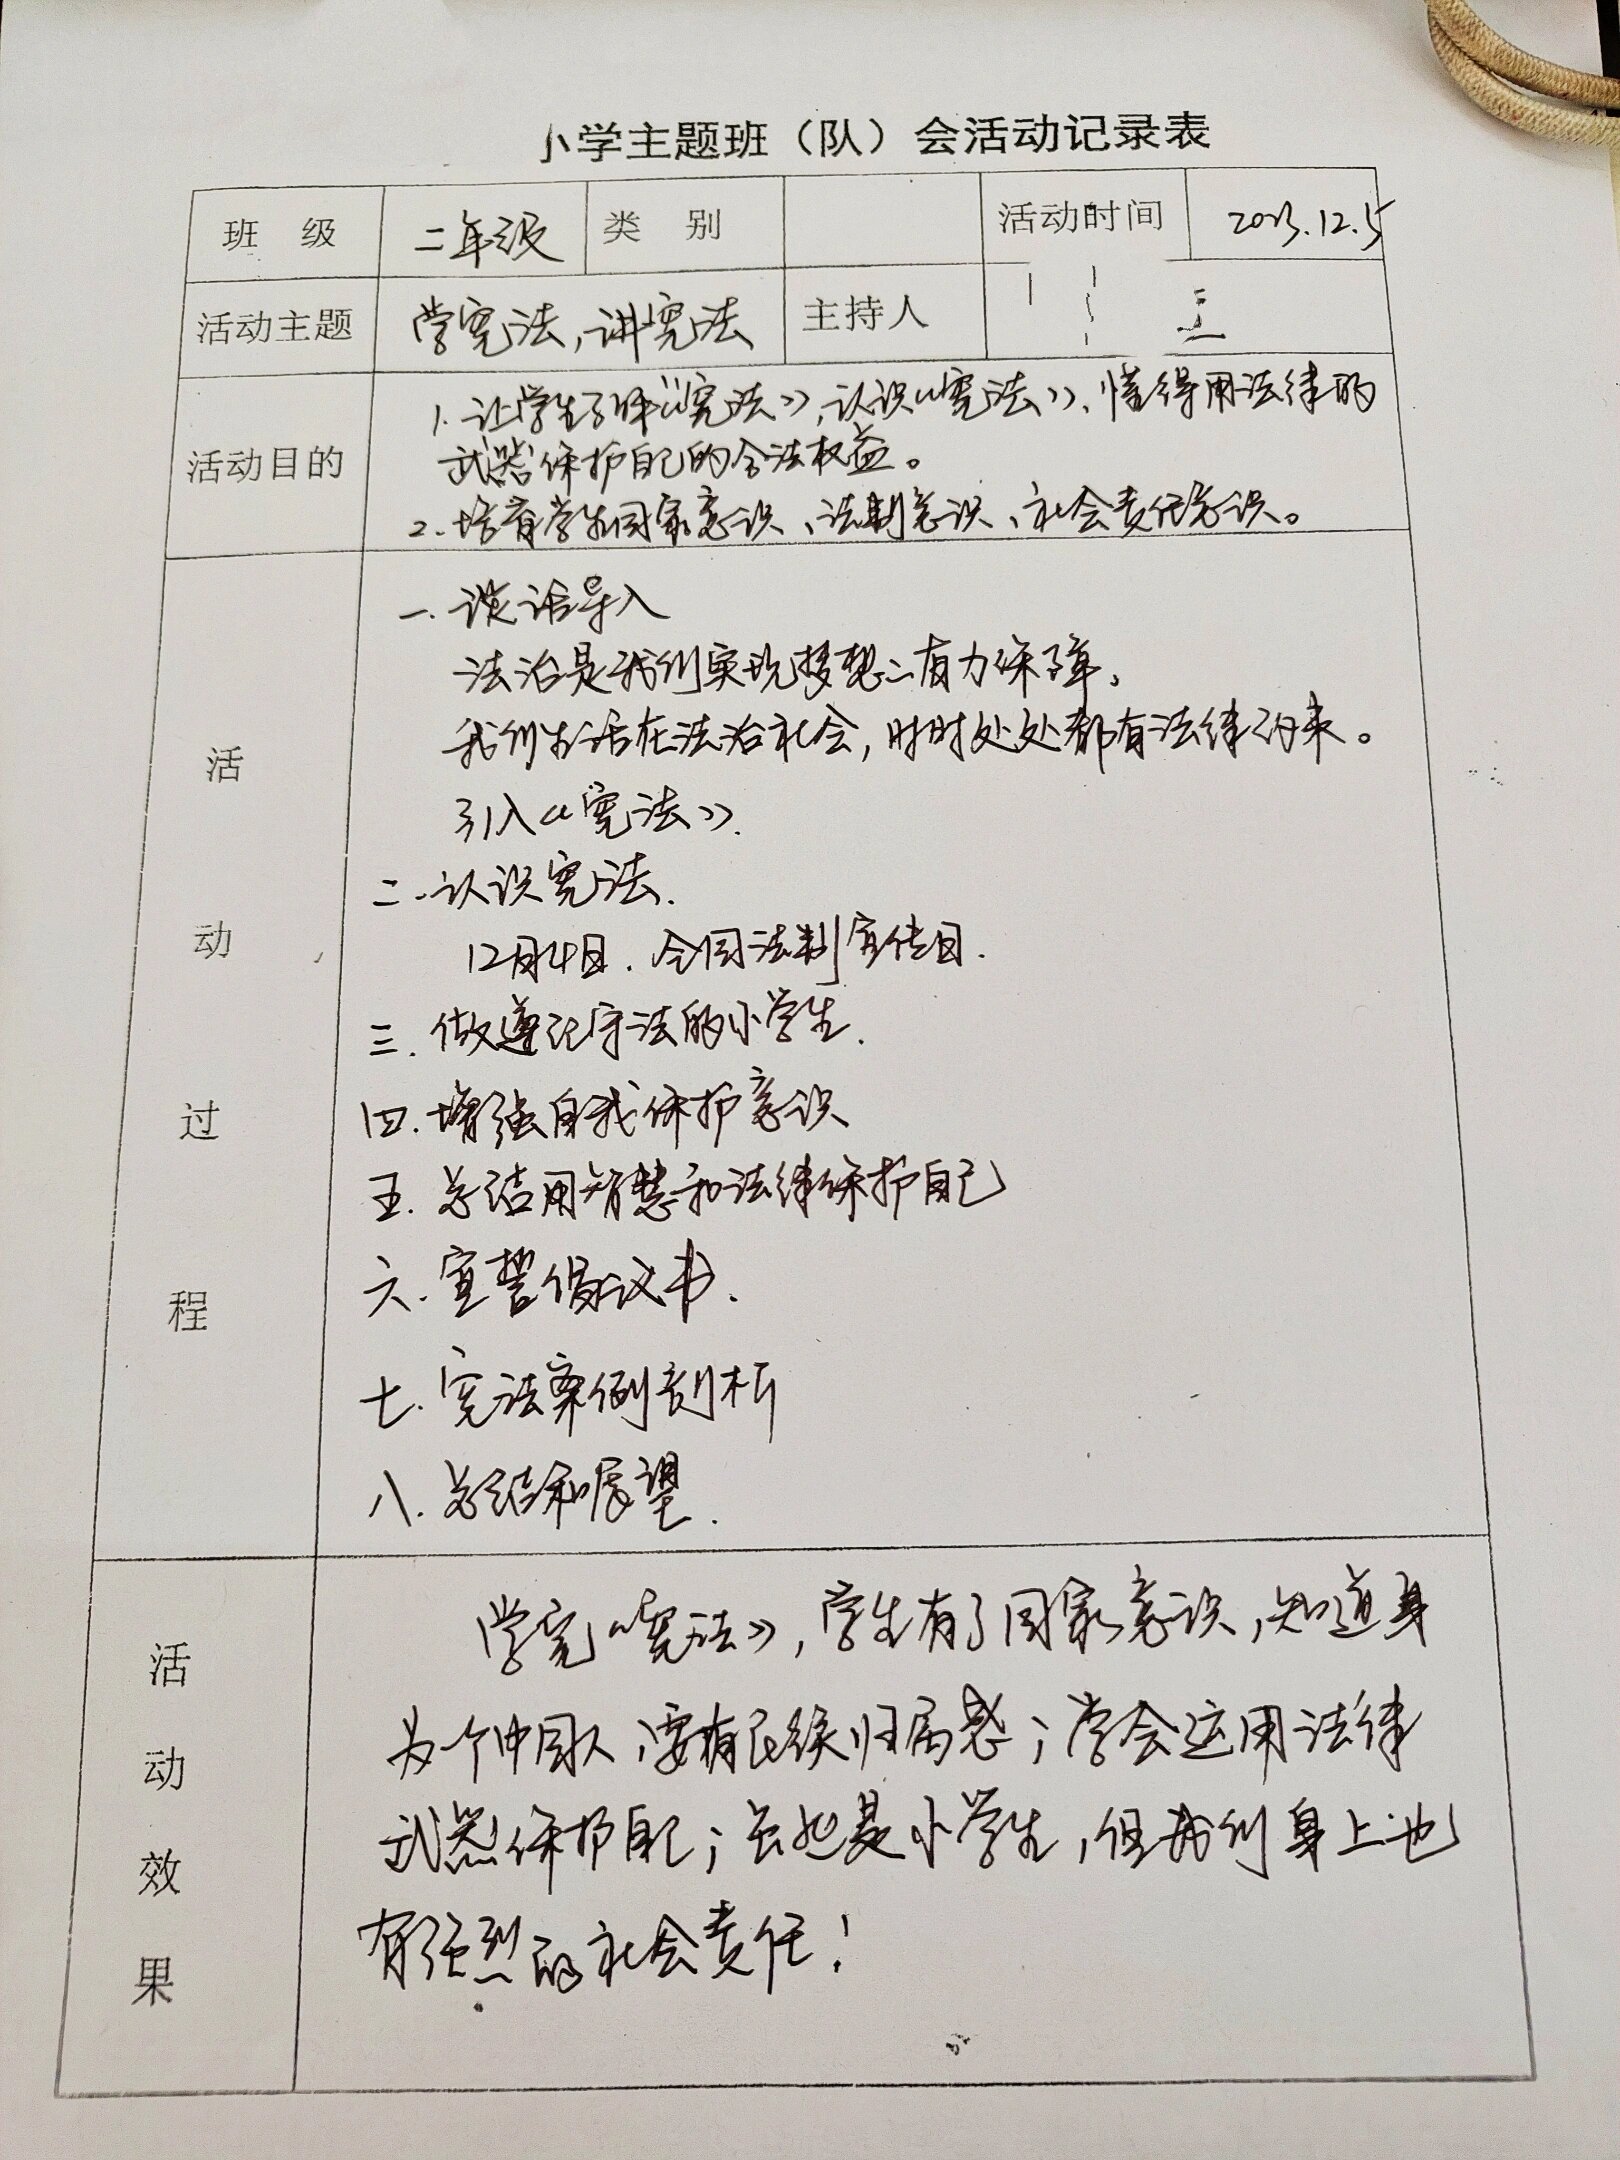 小学主题班（队）会活动记录表
班 级 二年级 类 别 活动时间 2023.12.5
活动主题 学宪法，讲宪法 主持人
活动目的
1. 让学生了解《宪法》，认识《宪法》、懂得用法律的
武器保护自己的合法权益。
2. 培育学生国家意识、法制意识、社会责任意识。
活动过程
一. 谈话导入
法治是我们实现梦想的有力保障。
我们生活在法治社会，时时处处都有法律约束。
引入《宪法》.
二. 认识宪法.
12月4日. 全国法制宣传日.
三. 做遵纪守法的小学生.
四. 增强自我保护意识
五. 总结用智慧和法律保护自己
六. 宣誓倡议书.
七. 宪法案例剖析
八. 总结和展望.
活动效果
学完《宪法》，学生有了国家意识，知道身
为个中国人，要有民族归属感；学会运用法律
武器保护自己；虽然是小学生，但我们身上也
有强烈的社会责任！